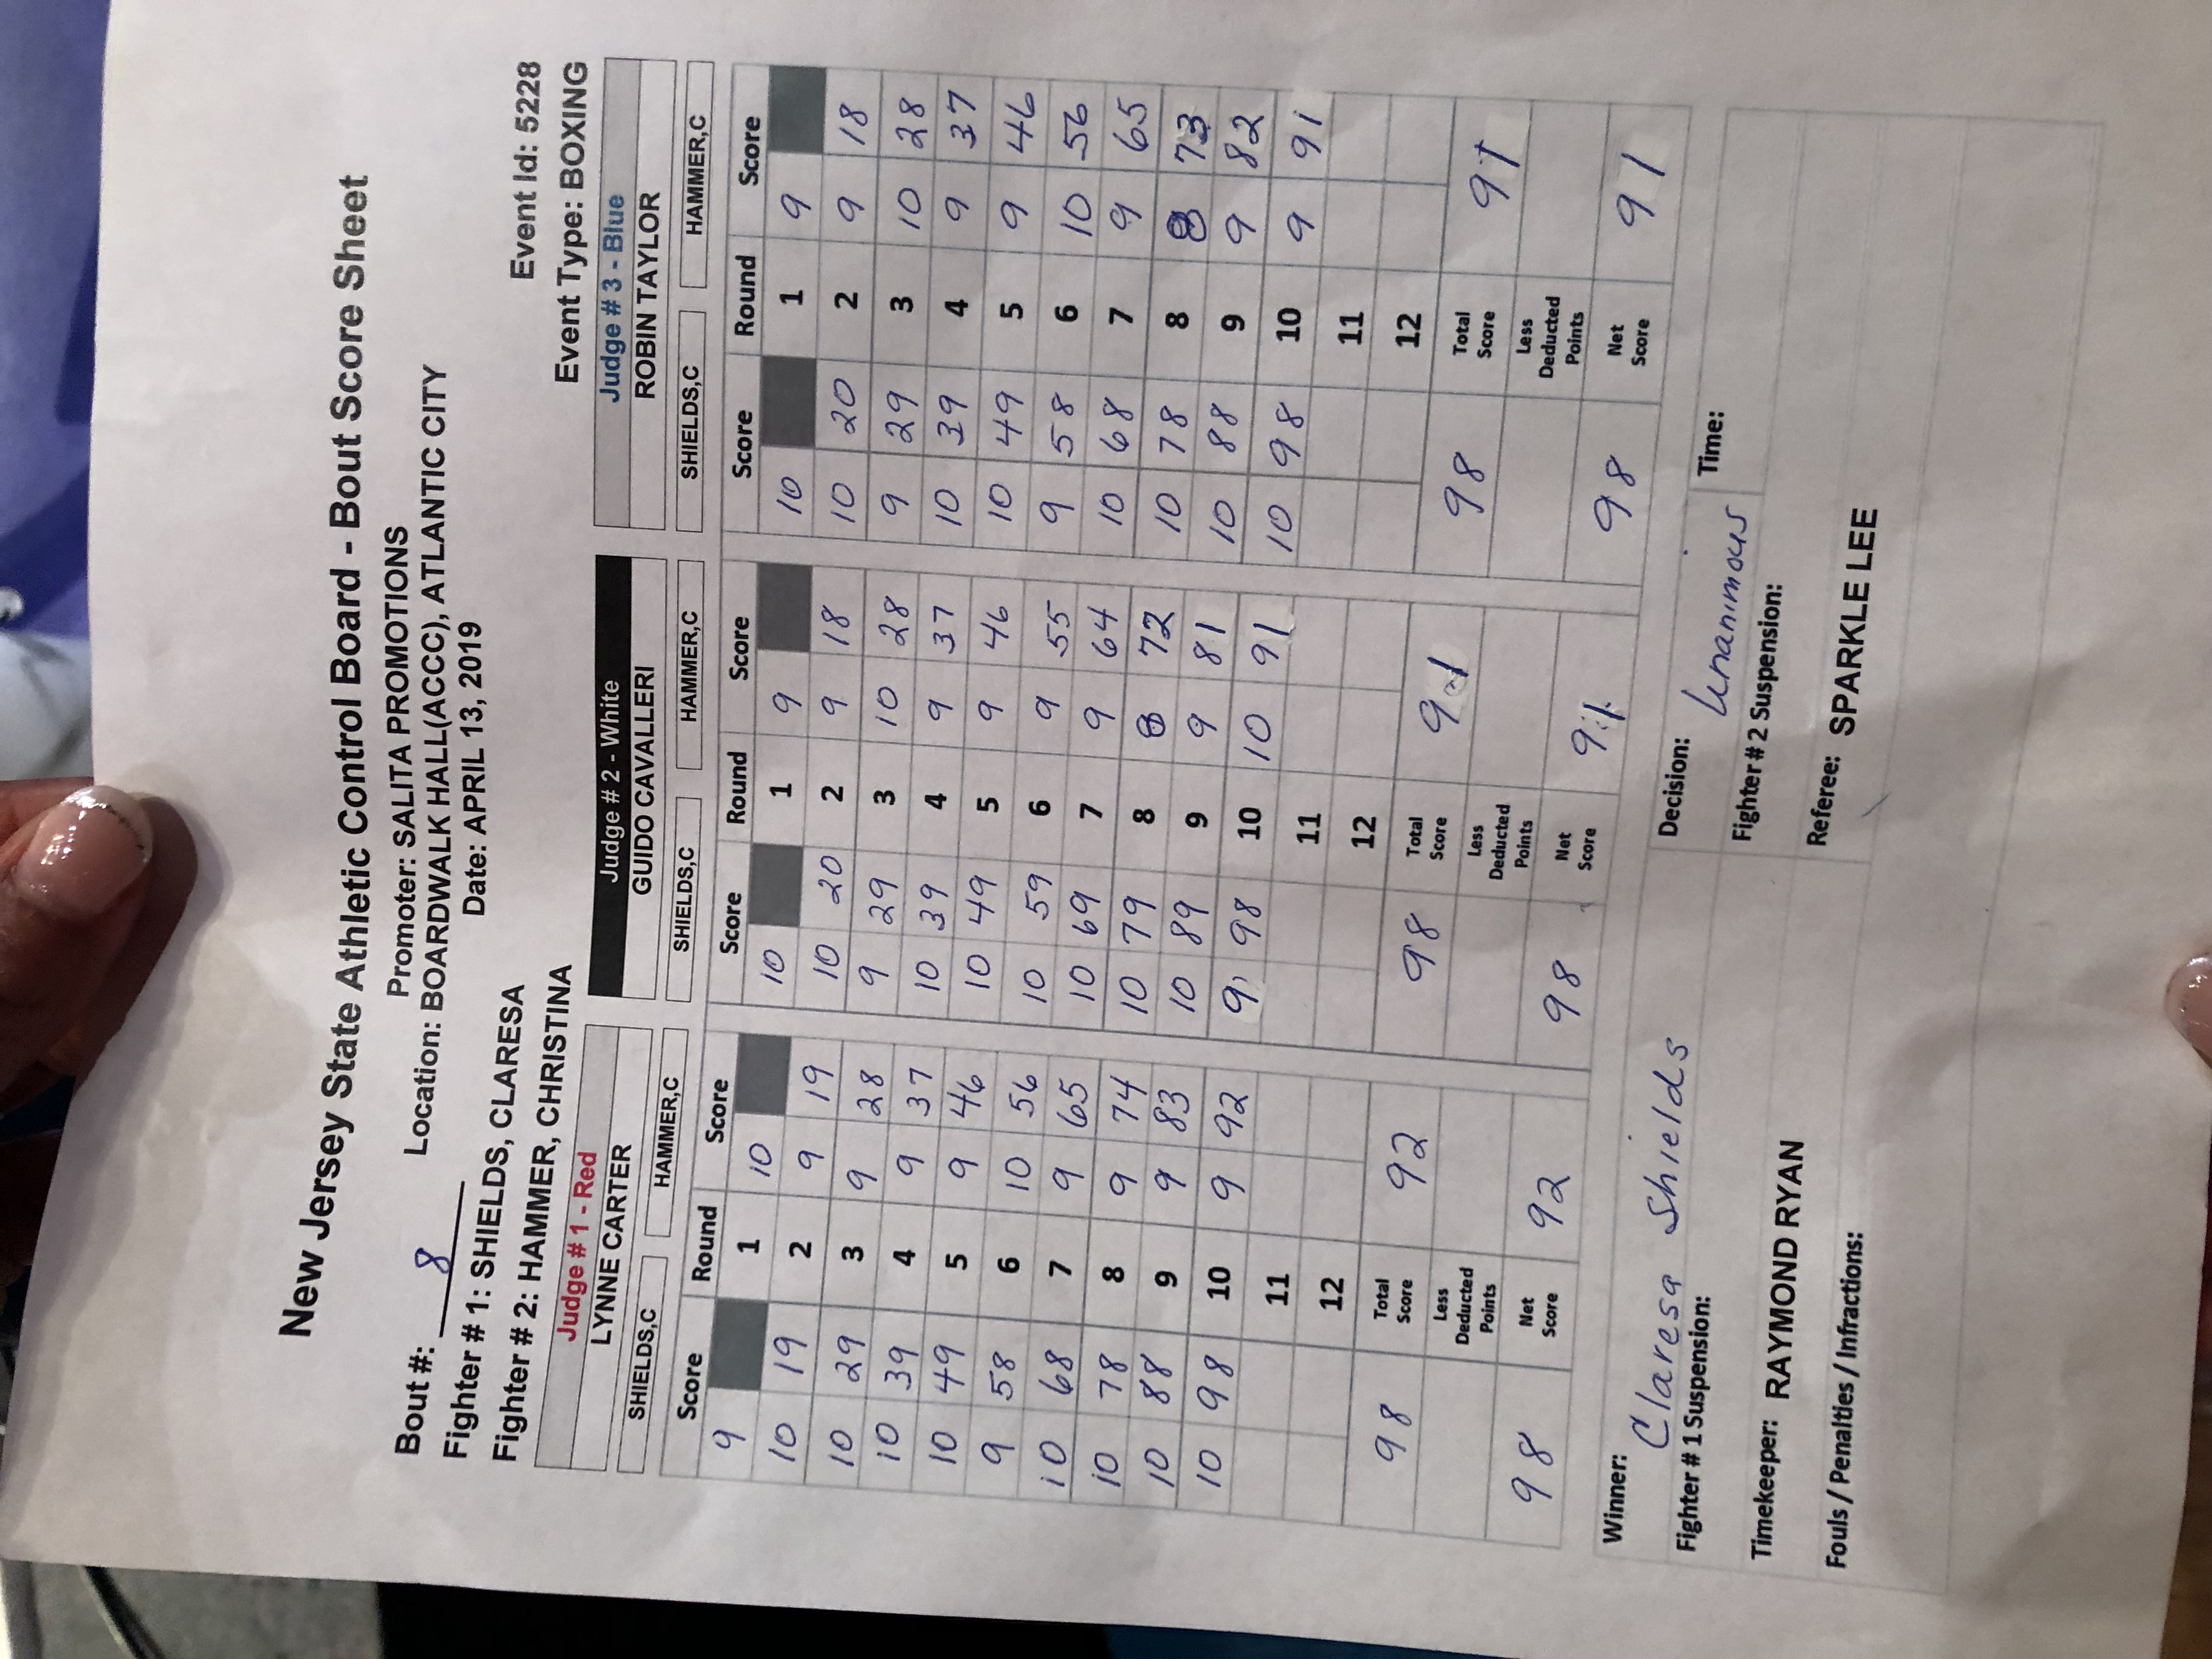 New Jersey State Athletic Control Board - Bout Score Sheet
Promoter: SALITA PROMOTIONS
Bout #: 8 Location: BOARDWALK HALL(ACCC), ATLANTIC CITY
Fighter # 1: SHIELDS, CLARESA Date: APRIL 13, 2019 Event Id: 5228
Fighter # 2: HAMMER, CHRISTINA Event Type: BOXING
Judge # 1 - Red Judge # 2 - White Judge # 3 - Blue
LYNNE CARTER GUIDO CAVALLERI ROBIN TAYLOR
SHIELDS,C HAMMER,C SHIELDS,C HAMMER,C SHIELDS,C HAMMER,C
Score Round Score Score Round Score Score Round Score
9 1 10 10 1 9 10 1 9
10 19 2 9 19 10 20 2 9 18 10 20 2 9 18
10 29 3 9 28 9 29 3 10 28 9 29 3 10 28
10 39 4 9 37 10 39 4 9 37 10 39 4 9 37
10 49 5 9 46 10 49 5 9 46 10 49 5 9 46
9 58 6 10 56 10 59 6 9 55 9 58 6 10 56
10 68 7 9 65 10 69 7 9 64 10 68 7 9 65
10 78 8 9 74 10 79 8 8 72 10 78 8 8 73
10 88 9 9 83 10 89 9 9 81 10 88 9 9 82
10 98 10 9 92 9 98 10 10 91 10 98 10 9 91
11 11 11
12 12 12
98 Total Score 92 98 Total Score 91 98 Total Score 91
Less Deducted Points Less Deducted Points Less Deducted Points
98 Net Score 92 98 Net Score 91 98 Net Score 91
Winner: Claresa Shields Decision: Unanimous Time:
Fighter # 1 Suspension: Fighter # 2 Suspension:
Timekeeper: RAYMOND RYAN Referee: SPARKLE LEE
Fouls / Penalties / Infractions: